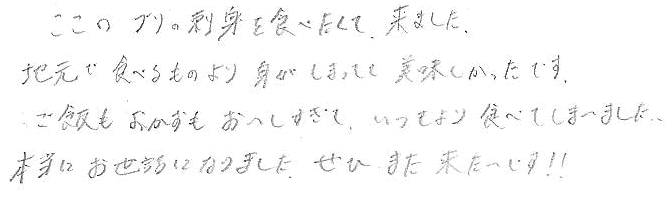 ここのブリの刺身を食べたくて、来ました。
地元で食べるものより身がしまってて美味しかったです。
ご飯もおかずもおいしすぎて、いつもより食べてしまいました。
本当にお世話になりました。ぜひまた来たいです!!